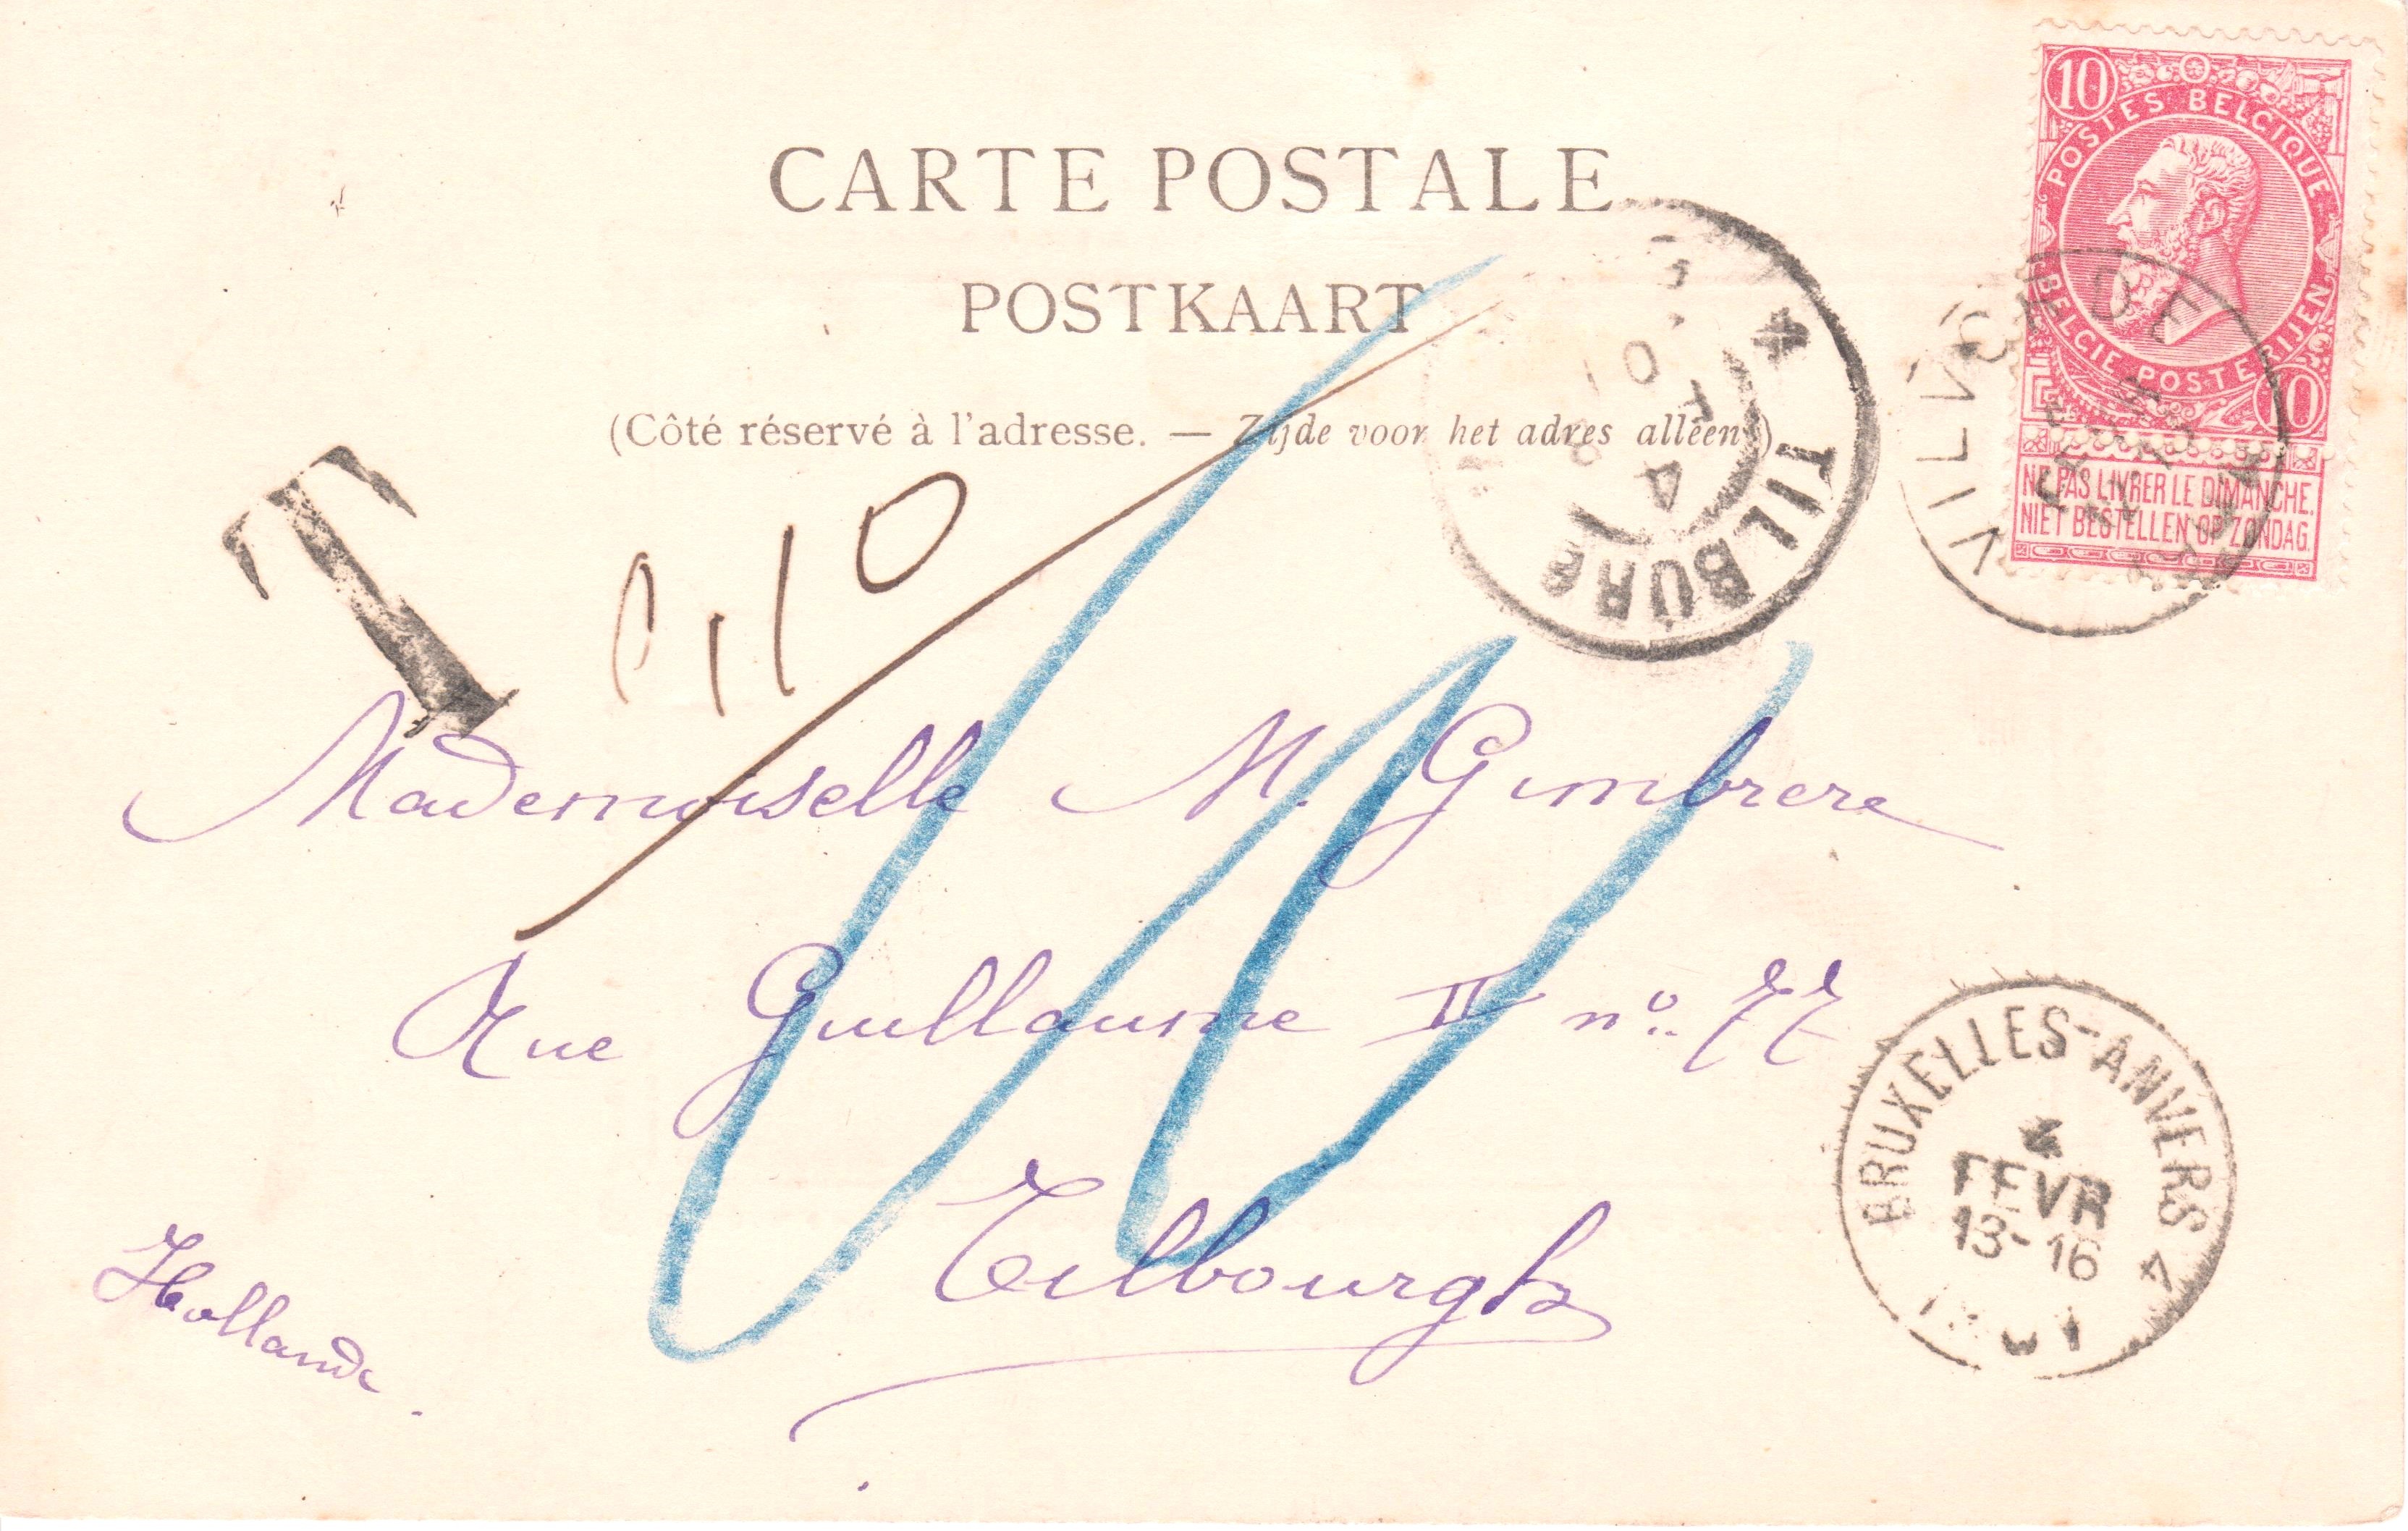 CARTE POSTALE
POSTKAART
(Côté réservé à l'adresse. — Zijde voor het adres alleen)
10
POSTES BELGIQUE
BELGIE POSTERIJEN
10
NE PAS LIVRER LE DIMANCHE.
NIET BESTELLEN OP ZONDAG.
VILVORDE
TILBURG
T
0,10
10
Mademoiselle M. Gimbrere
Rue Guillaume II no. 77
Tilbourgh
Hollande.
BRUXELLES-ANVERS 4
4
FEVR
13-16